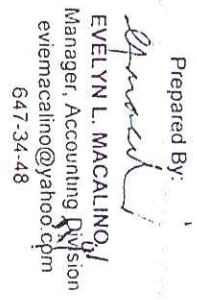 Prepared By:
EVELYN L. MACALINO
Manager, Accounting Division
eviemacalino@yahoo.com
647-34-48